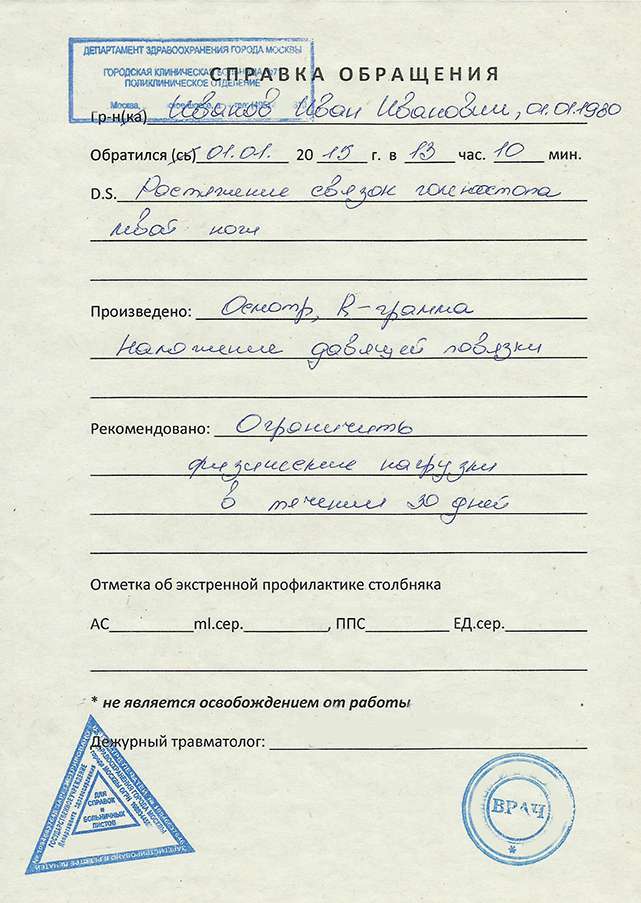 ДЕПАРТАМЕНТ ЗДРАВООХРАНЕНИЯ ГОРОДА МОСКВЫ
ГОРОДСКАЯ КЛИНИЧЕСКАЯ БОЛЬНИЦА №7
ПОЛИКЛИНИЧЕСКОЕ ОТДЕЛЕНИЕ
Москва,
СПРАВКА ОБРАЩЕНИЯ
Гр-н(ка) Иванов Иван Иванович, 01.01.1980
Обратился (сь) 01.01. 2015 г. в 13 час. 10 мин.
D.S. Растяжение связок голеностопа
левой ноги
Произведено: Осмотр, R-грамма
Наложение давящей повязки
Рекомендовано: Ограничить
физические нагрузки
в течении 30 дней
Отметка об экстренной профилактике столбняка
АС__________ml.сер.__________, ППС__________ ЕД.сер.__________
* не является освобождением от работы
Дежурный травматолог:
ДЛЯ
СПРАВОК
и
БОЛЬНИЧНЫХ
ЛИСТОВ
ВРАЧ